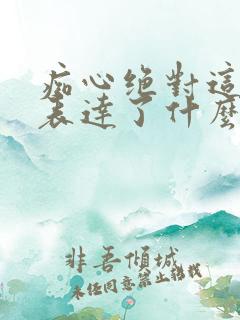 痴心绝對這
表達了什麼
非吾傾城
未任同意禁止轉載